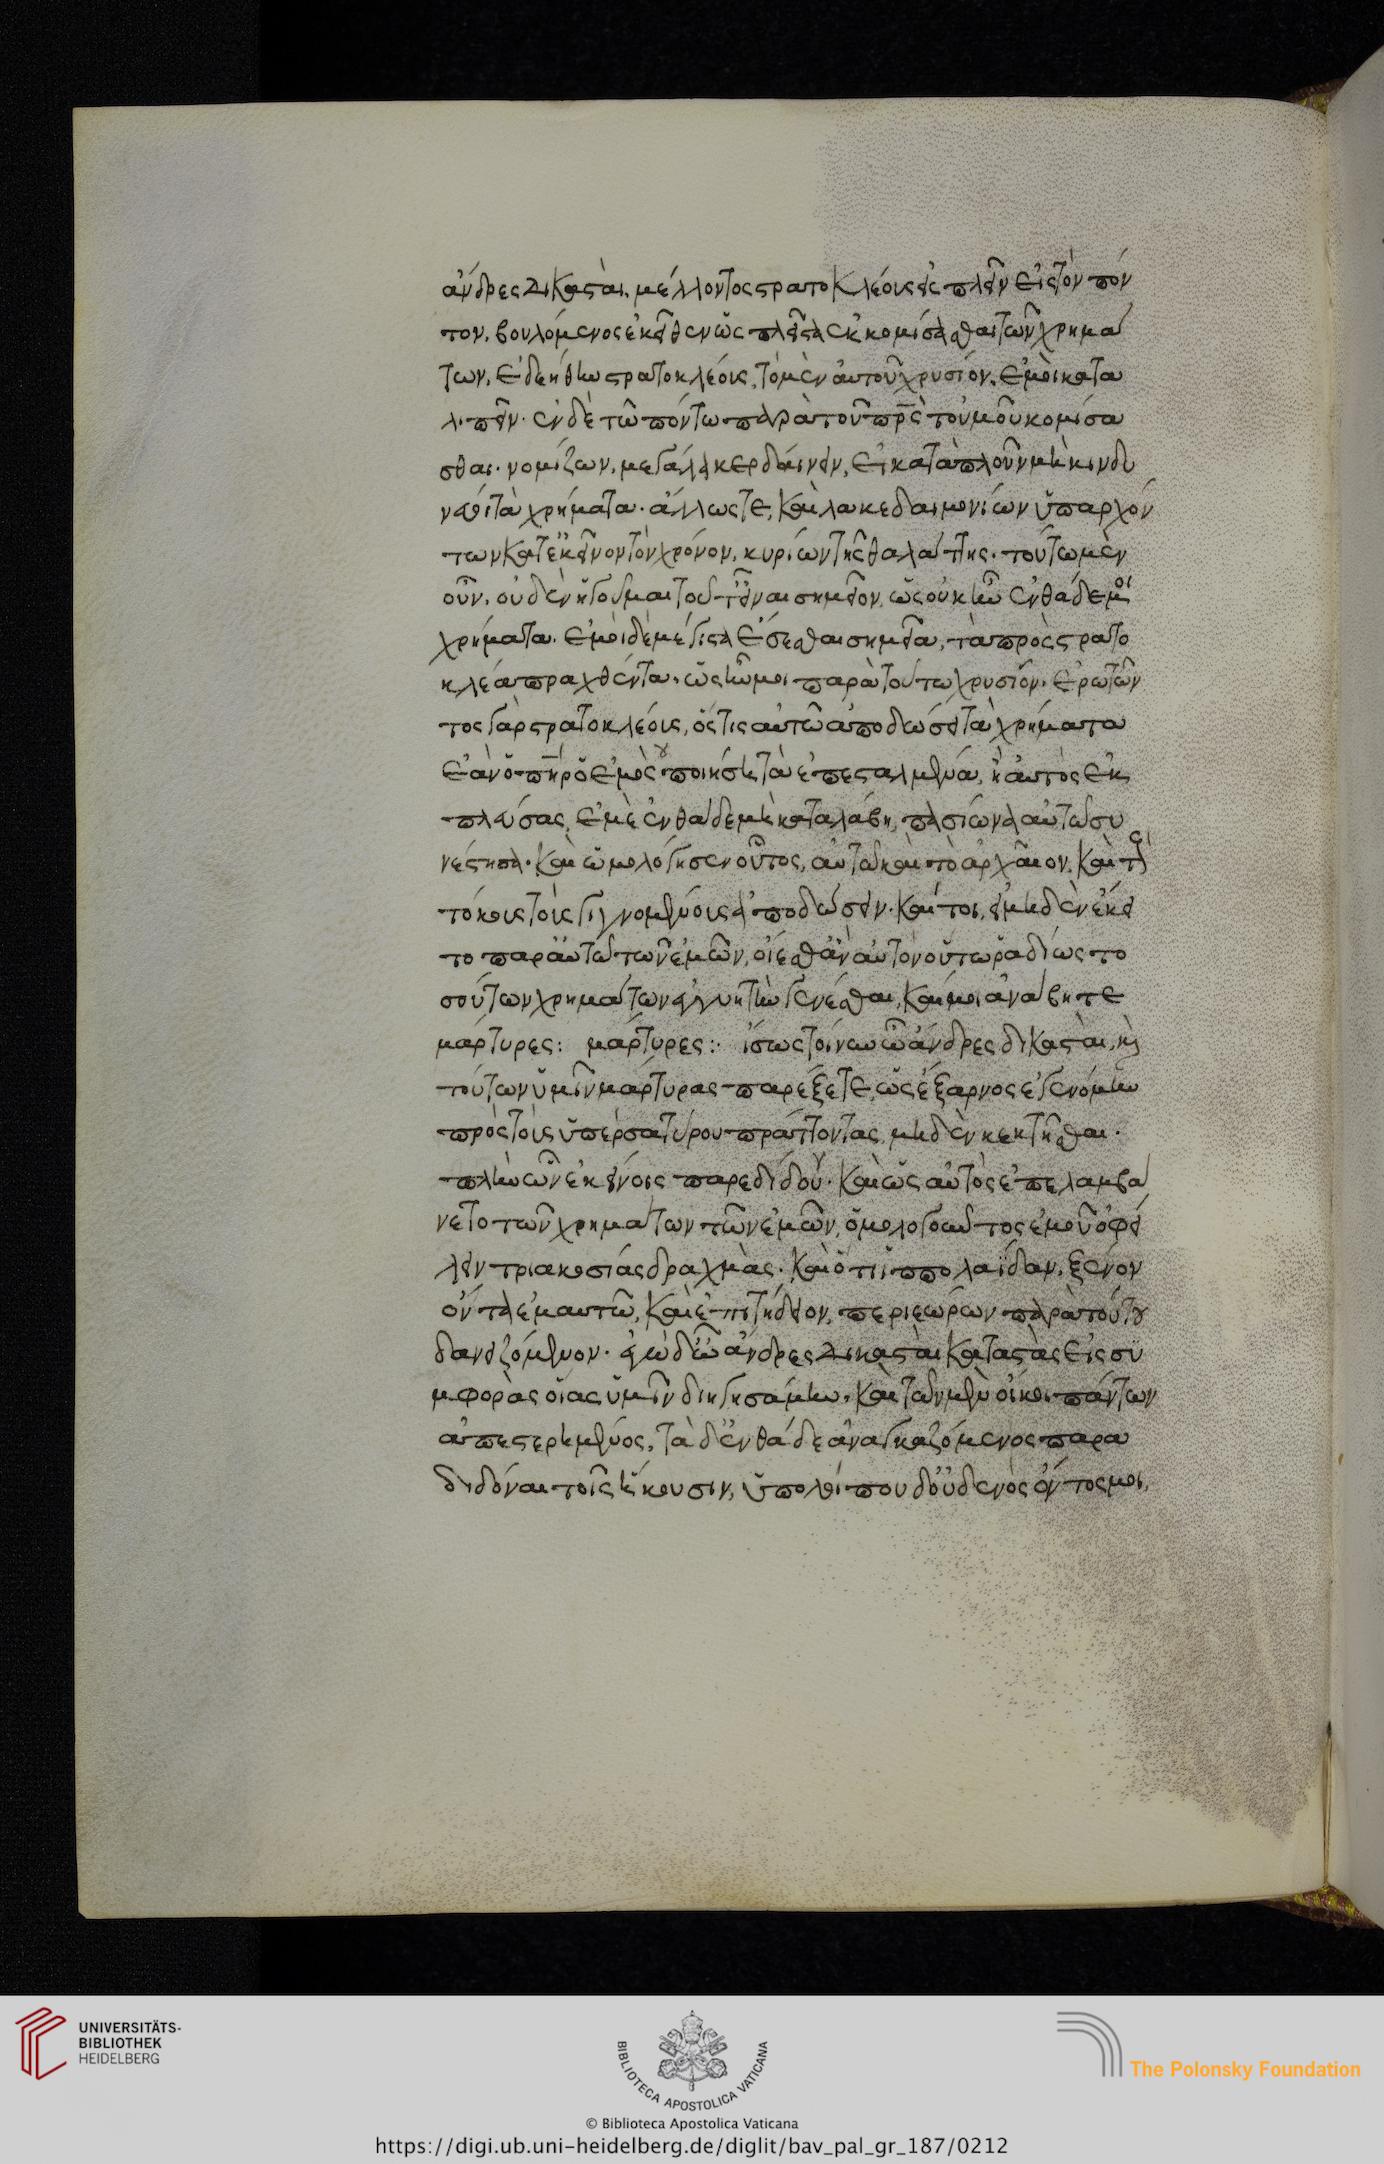 ἄνδρες δικασταὶ. μέλλοντος στρατοκλέους εἰσπλεῖν εἰς τὸν πόν
τον. βουλόμενος ἐκεῖθεν ὡς πλεῖστα ἐκκομίσασθαι τῶν χρημά
των. ἐδεήθην στρατοκλέους, τὸ μὲν αὑτοῦ χρυσίον, ἐμοὶ κατα
λιπεῖν· ἐν δὲ τῶ πόντω παρὰ τοῦ πρς τοὐμοῦ κομίσα
σθαι. νομίζων, μεγάλα κερδαίνειν, εἰ κατὰ πλοῦν μὴ κινδυ
νεύει τὰ χρήματα. ἄλλως τε, καὶ λακεδαιμονίων ὑπαρχόν
των κατ' ἐκεῖνον τὸν χρόνον, κυρίων τῆς θαλάττης. τούτω μὲν
οὖν, οὐδὲν ἡγοῦμαι τοῦτ' εἶναι σημεῖον, ὡς οὐκ ἦν ἐνθάδέ μοι
χρήματα. ἐμοὶ δὲ μέγιστα ἔσεσθαι σημεῖα, τὰ πρὸς στρατο
κλέα πραχθέντα, ὡς ἦν μοι παρὰ τούτω χρυσίον. ἐρωτῶν
τος γὰρ στρατοκλέους, ὅστις αὐτῶ ἀποδώσει τὰ χρήματα
ἐὰν ὁ πηρ ὁ ἐμὸς μὴ ποιήση τὰ ἐπεσταλμένα, ἢ αὐτὸς ἐκ
πλεύσας, ἐμὲ ἐνθάδε μὴ καταλάβη, πασίωνα αὐτῶ συ
νέστησα. καὶ ὡμολόγησεν οὗτος, αὐτῶ καὶ τὸ ἀρχαῖον, καὶ τοὺς
τόκους τοὺς γιγνομένους ἀποδώσειν. καίτοι, εἰ μηδὲν ἔκει
το παρ' αὐτῶ τῶν ἐμῶν, οἴεσθ' ἂν αὐτὸν οὕτω ῥαδίως το
σούτων χρημάτων ἐγγυητὴν γενέσθαι, καί μοι ἀνάβητε
μάρτυρες: μάρτυρες: ἴσως τοίνυν ὦ ἄνδρες δικασταὶ, κὶ
τούτων ὑμῖν μάρτυρας παρέξεται, ὡς ἔξαρνος ἐγενόμην
πρὸς τοὺς ὑπὲρ σατύρου πράττοντας, μηδὲν κεκτῆσθαι.
πλὴν ὧν ἐκείνοις παρεδίδουν. καὶ ὡς αὐτὸς ἐπελαμβά
νετο τῶν χρημάτων τῶν ἐμῶν, ὁμολογοῦντος ἐμοῦ ὀφεί
λειν τριακοσίας δραχμὰς. καὶ ὅτι ἱππολαΐδαν, ξένον
ὄντα ἐμαυτῶ, καὶ ἐπιτήδειον, περιεώρων παρὰ τούτου
δανειζόμενον. ἐγὼ δ' ὦ ἄνδρες δικασταὶ καταστὰς εἰς συ
μφορὰς οἵας ὑμῖν διηγησάμην, καὶ τῶν μὲν οἴκοι πάντων
ἀπεστερημένος, τὰ δ' ἐνθάδε ἀναγκαζόμενος παρα
διδόναι τοῖς ἥκουσιν, ὑπολοίπου δ' οὐδενὸς ὄντος μοι,
UNIVERSITÄTS-
BIBLIOTHEK
HEIDELBERG
BIBLIOTECA APOSTOLICA VATICANA
The Polonsky Foundation
© Biblioteca Apostolica Vaticana
https://digi.ub.uni-heidelberg.de/diglit/bav_pal_gr_187/0212